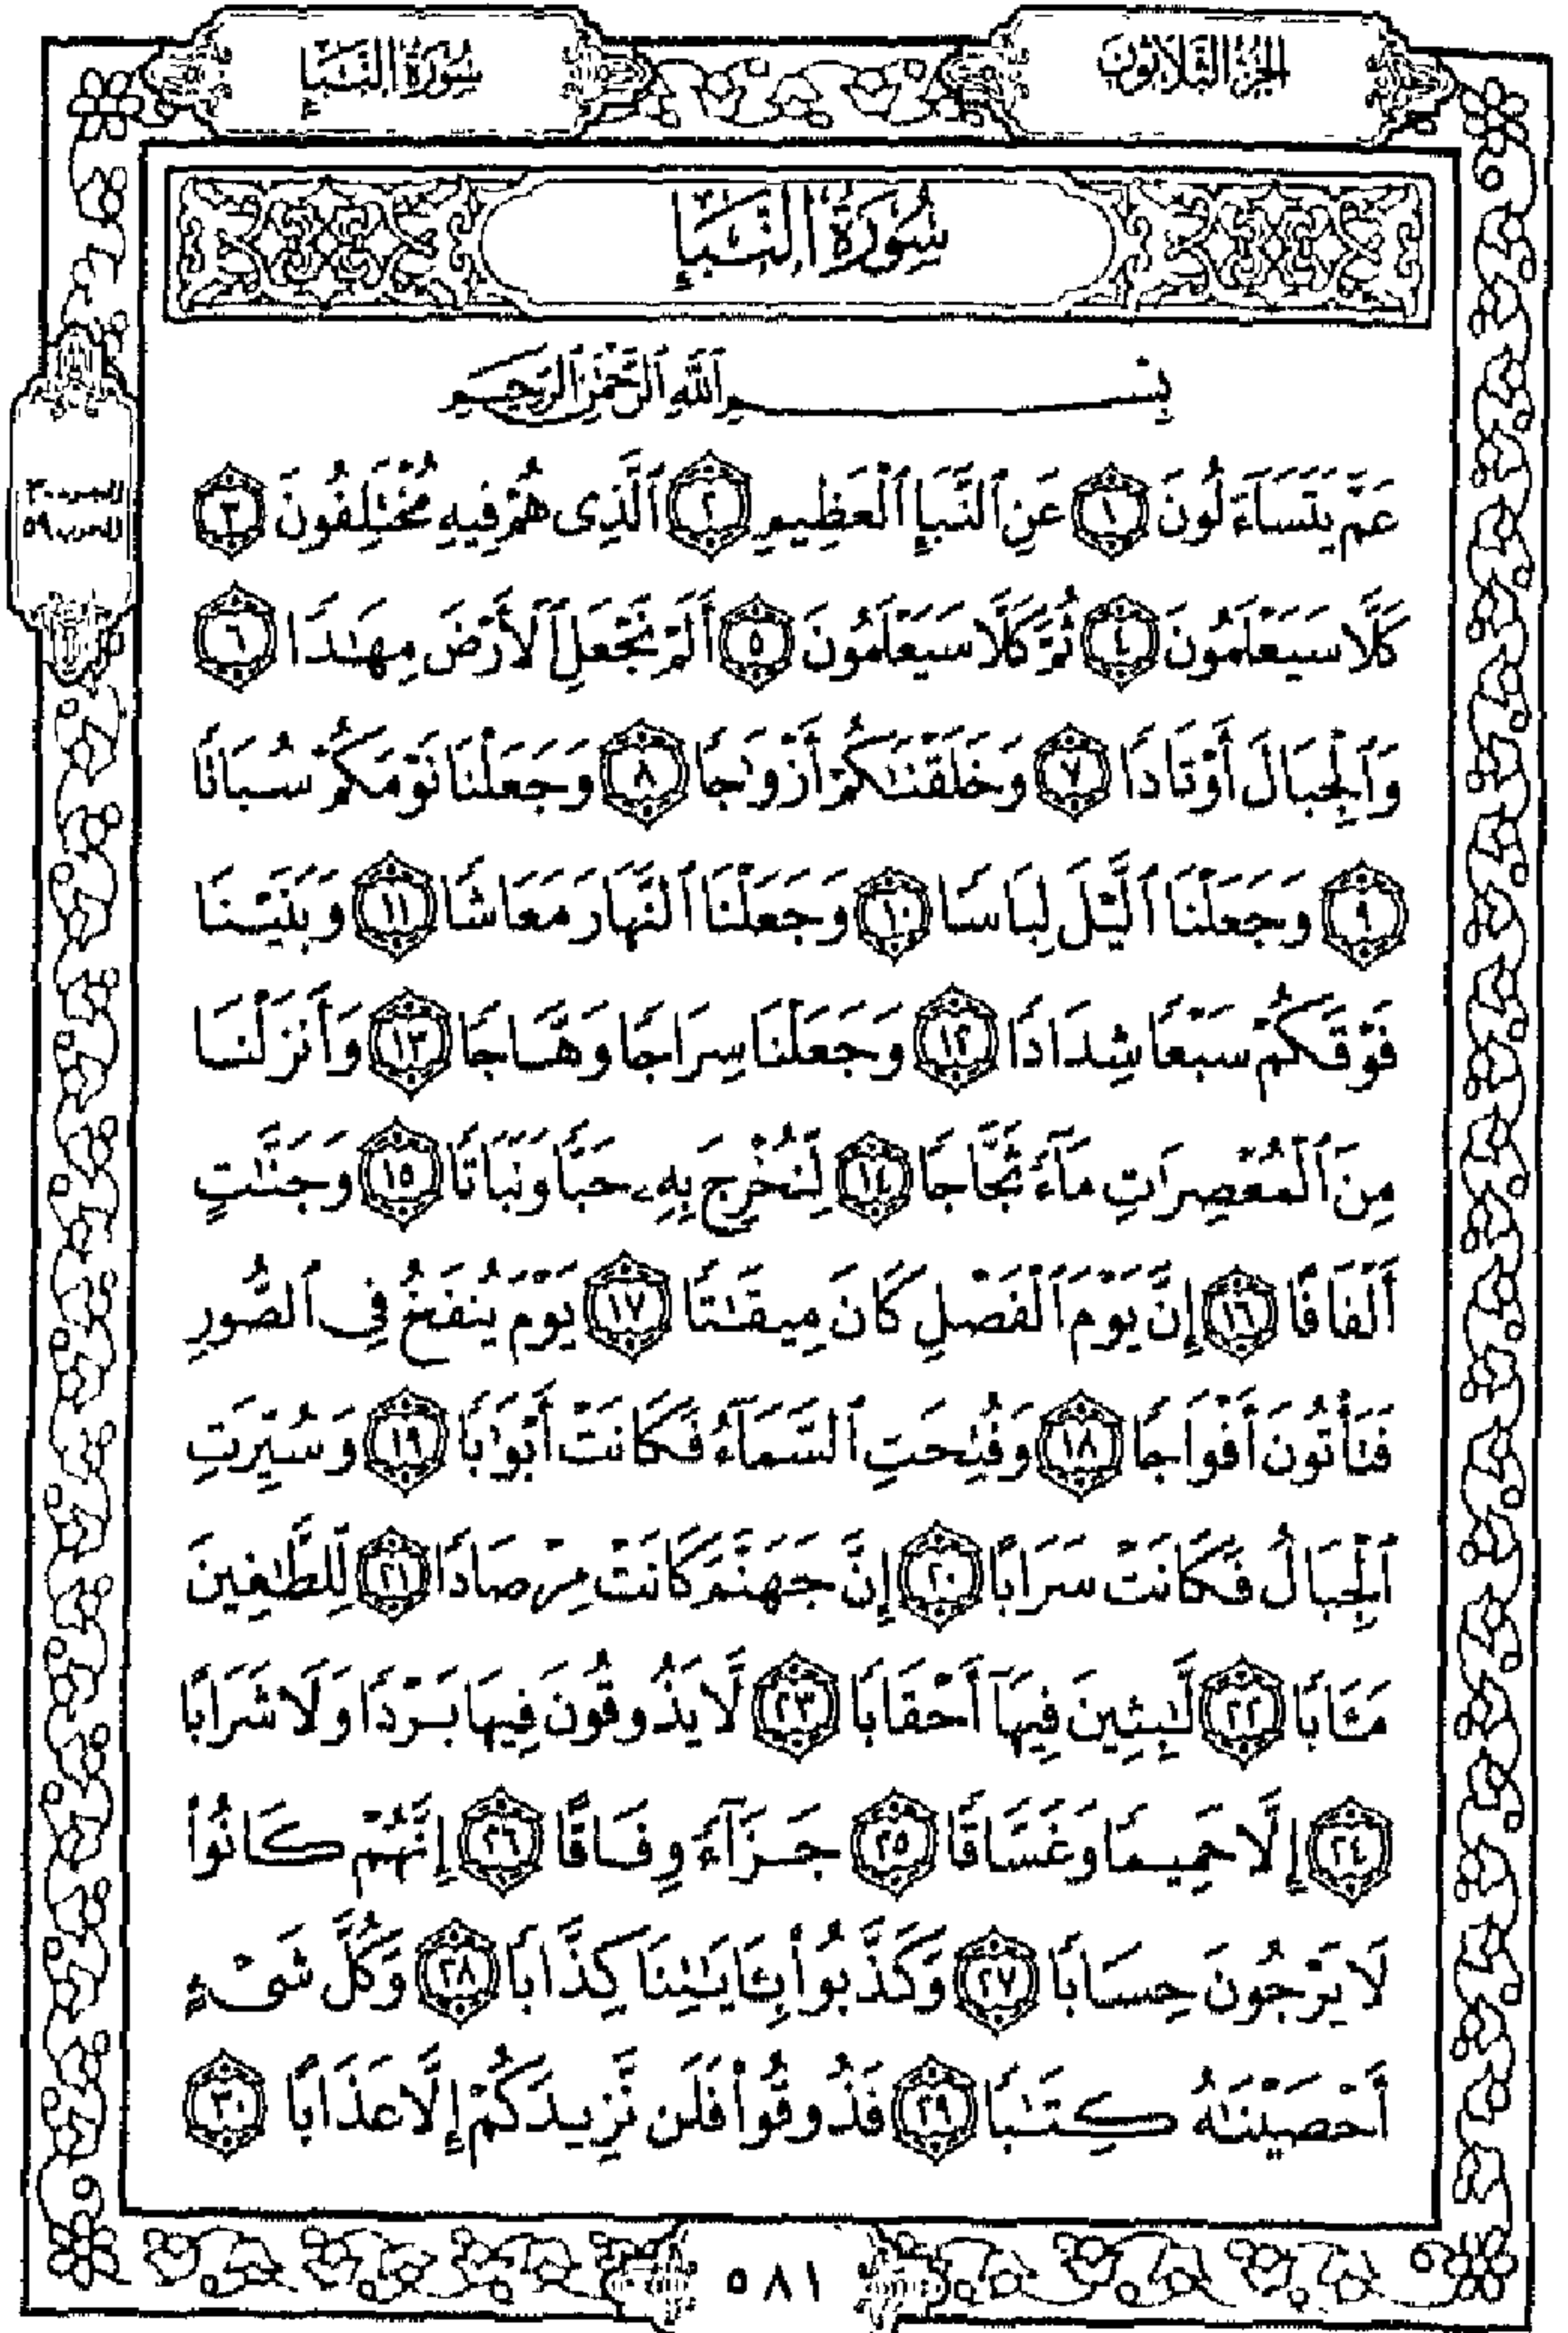 الجزء الثلاثون
سورة النبإ
سُورَةُ النَّبَإِ
بِسْمِ ٱللَّهِ ٱلرَّحْمَٰنِ ٱلرَّحِيمِ
الجزء ٣٠
الحزب ٥٩
عَمَّ يَتَسَآءَلُونَ ١ عَنِ ٱلنَّبَإِ ٱلْعَظِيمِ ٢ ٱلَّذِى هُمْ فِيهِ مُخْتَلِفُونَ ٣
كَلَّا سَيَعْلَمُونَ ٤ ثُمَّ كَلَّا سَيَعْلَمُونَ ٥ أَلَمْ نَجْعَلِ ٱلْأَرْضَ مِهَٰدًا ٦
وَٱلْجِبَالَ أَوْتَادًا ٧ وَخَلَقْنَٰكُمْ أَزْوَٰجًا ٨ وَجَعَلْنَا نَوْمَكُمْ سُبَاتًا
٩ وَجَعَلْنَا ٱلَّيْلَ لِبَاسًا ١٠ وَجَعَلْنَا ٱلنَّهَارَ مَعَاشًا ١١ وَبَنَيْنَا
فَوْقَكُمْ سَبْعًا شِدَادًا ١٢ وَجَعَلْنَا سِرَاجًا وَهَّاجًا ١٣ وَأَنزَلْنَا
مِنَ ٱلْمُعْصِرَٰتِ مَآءً ثَجَّاجًا ١٤ لِّنُخْرِجَ بِهِۦ حَبًّا وَنَبَاتًا ١٥ وَجَنَّٰتٍ
أَلْفَافًا ١٦ إِنَّ يَوْمَ ٱلْفَصْلِ كَانَ مِيقَٰتًا ١٧ يَوْمَ يُنفَخُ فِى ٱلصُّورِ
فَتَأْتُونَ أَفْوَاجًا ١٨ وَفُتِحَتِ ٱلسَّمَآءُ فَكَانَتْ أَبْوَٰبًا ١٩ وَسُيِّرَتِ
ٱلْجِبَالُ فَكَانَتْ سَرَابًا ٢٠ إِنَّ جَهَنَّمَ كَانَتْ مِرْصَادًا ٢١ لِّلطَّٰغِينَ
مَـَٔابًا ٢٢ لَّٰبِثِينَ فِيهَآ أَحْقَابًا ٢٣ لَّا يَذُوقُونَ فِيهَا بَرْدًا وَلَا شَرَابًا
٢٤ إِلَّا حَمِيمًا وَغَسَّاقًا ٢٥ جَزَآءً وِفَاقًا ٢٦ إِنَّهُمْ كَانُوا۟
لَا يَرْجُونَ حِسَابًا ٢٧ وَكَذَّبُوا۟ بِـَٔايَٰتِنَا كِذَّابًا ٢٨ وَكُلَّ شَىْءٍ
أَحْصَيْنَٰهُ كِتَٰبًا ٢٩ فَذُوقُوا۟ فَلَن نَّزِيدَكُمْ إِلَّا عَذَابًا ٣٠
٥٨١